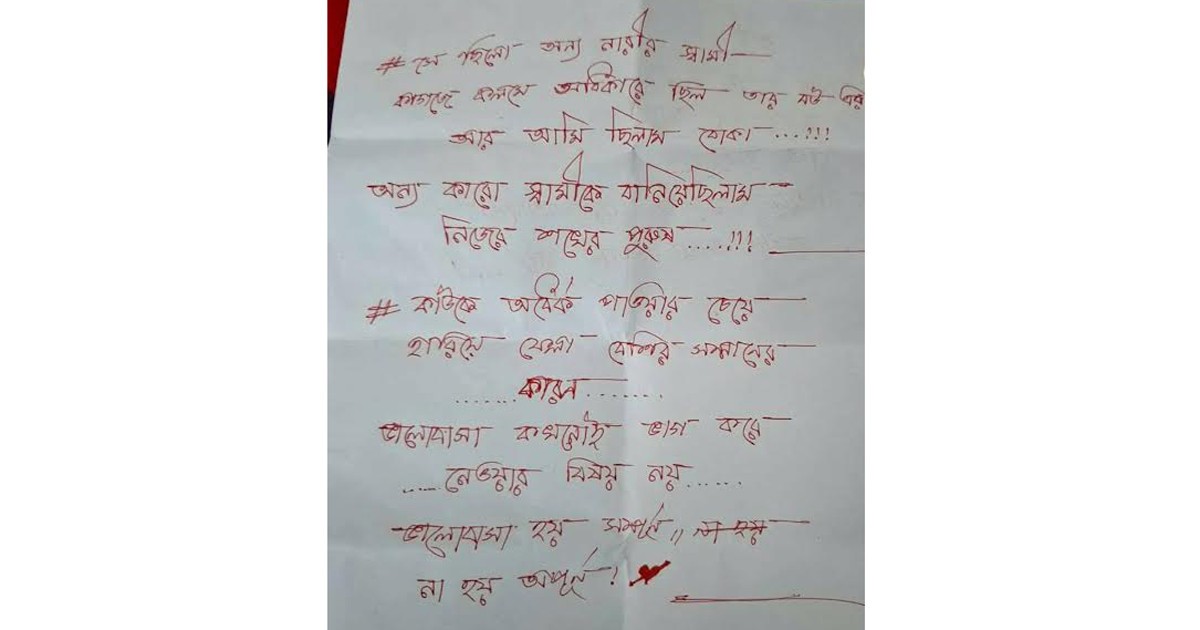 # সে ছিলো অন্য নারীর স্বামী—
কাগজে কলমে অধিকারে ছিল তার বউ এর
আর আমি ছিলাম বোকা ...!!!
অন্য কারো স্বামীকে বানিয়েছিলাম -
নিজের শখের পুরুষ ....!!!
# কাউকে অর্ধেক পাওয়ার চেয়ে
হারিয়ে ফেলা বেশির সম্মানের
....... কারন .......
ভালোবাসা কখনোই ভাগ করে
..... নেওয়ার বিষয় নয় ......
ভালোবাসা হয় সম্পূর্ন ,,
না হয় অপূর্ন !